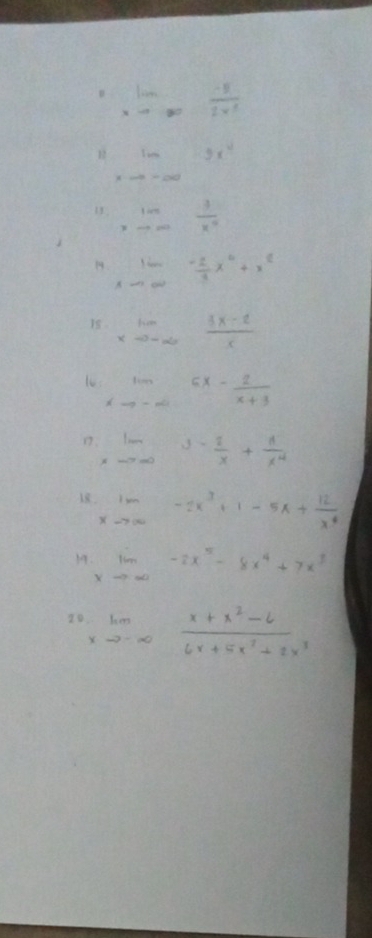 lim x→-∞ -5/2x
12. lim x→-∞ 9x⁴
13. lim x→∞ 3/x⁴
14. lim x→∞ -2/3 x⁶ + x²
15. lim x→-∞ 3x-2/x
16. lim x→-∞ 6x - 2/x+3
17. lim x→∞ 3 - 2/x + 8/x⁴
18. lim x→∞ -2x³ + 1 - 5x + 12/x
19. lim x→∞ -2x⁵ - 8x⁴ + 7x³
20. lim x→-∞ x + x² - 6/6x + 5x² + 2x³